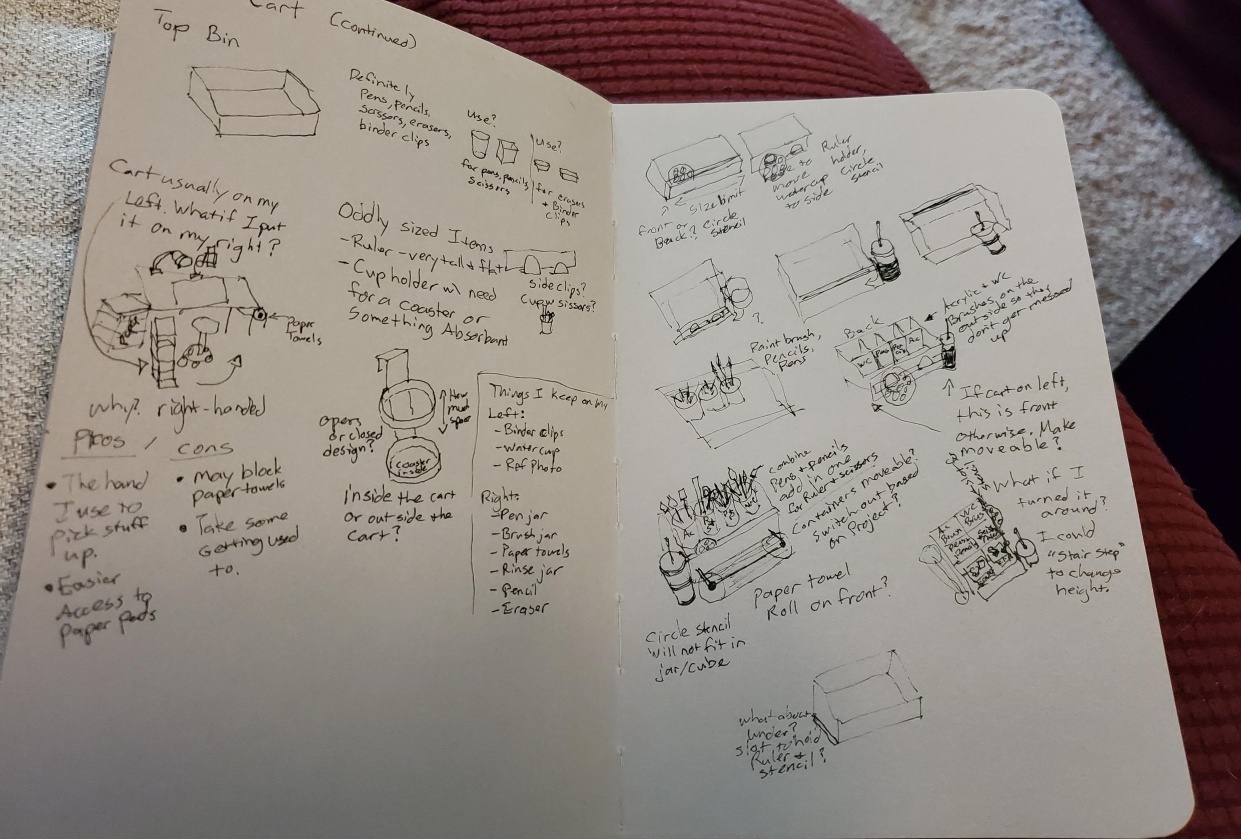 Cart (continued)
Top Bin
Definitely
Pens, pencils,
scissors, erasers,
binder clips
Use?
for pens, pencils
scissors
Use?
for erasers
+ Binder
clips
Cart usually on my
Left. What if I put
it on my right?
Paper
towels
why? right-handed
Pros / cons
• The hand
I use to
pick stuff
up.
• Easier
Access to
paper pads
• may block
paper towels
• Take some
Getting used
to.
Oddly sized Items
- Ruler - very tall + flat
- Cup holder w/ need
for a coaster or
Something Absorbant
side clips?
Cup w sissors?
opens
or closed
design?
How
much
space
coaster
inside
inside the cart
or outside the
cart?
Things I keep on my
Left:
- Binder clips
- Water cup
- Ref Photo
Right:
- Pen jar
- Brush jar
- Paper towels
- Rinse jar
- Pencil
- Eraser
← size limit
front or
Back? Circle
stencil
Ruler
holder,
circle
stencil
move
watercup
to side
?
Paint brush,
Pencils,
Pens
Back
WC
Ac
Acrylic + WC
Brushes on the
outside so they
don't get messed
up
If cart on left,
this is front
otherwise. Make
moveable?
combine
Pens & pencils
add in one
for Ruler & scissors
Containers moveable?
Switch out based
on Project?
Ac
WC
What if I
turned it
around?
I could
"stair step"
to change
height.
Paper towel
Roll on front?
Circle stencil
will not fit in
jar/cube
what about
under?
slot to hold
Ruler +
stencil?